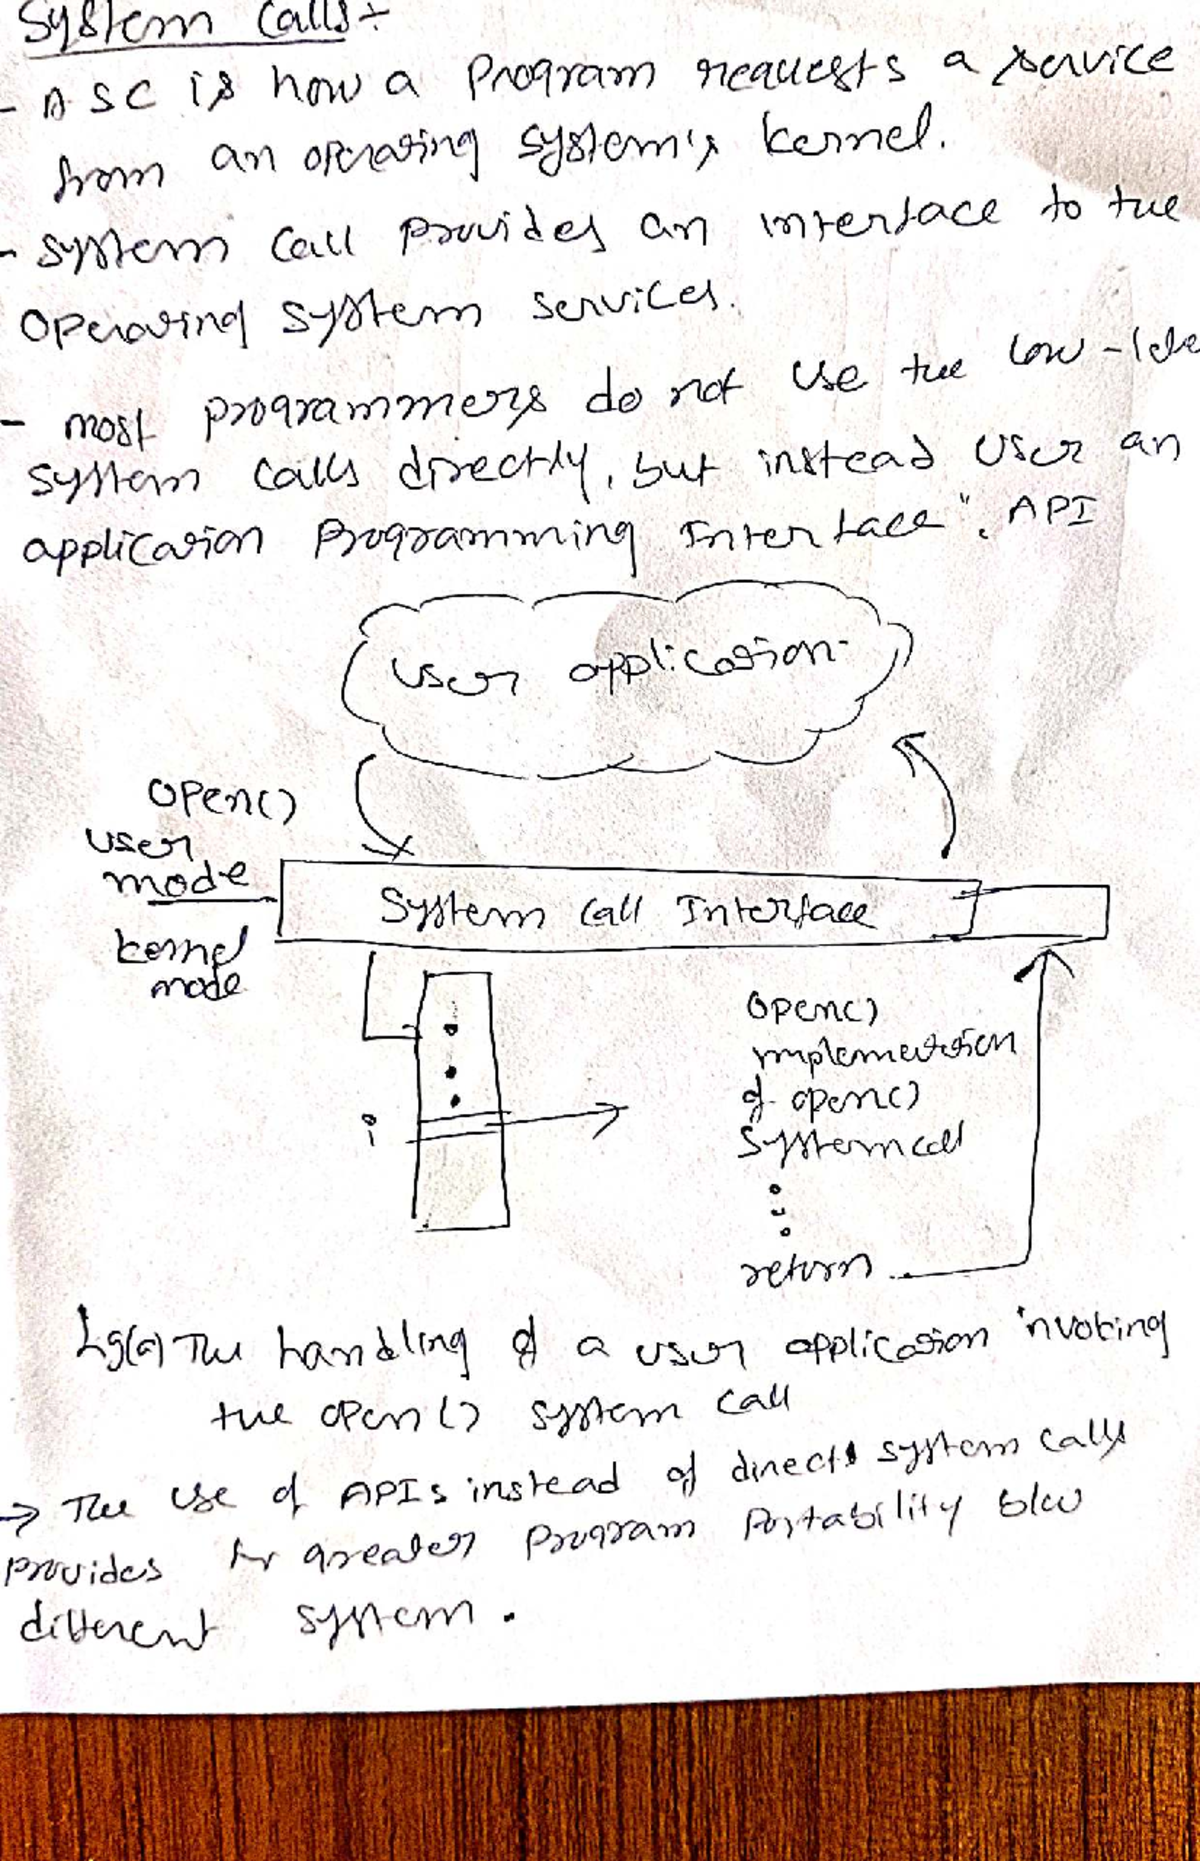 System Calls:-
- A SC is how a Program requests a service
from an operating system's kernel.
- System Call Provides an interface to the
Operating System services.
- most programmers do not use the low-leve
System Calls directly, but instead User an
application Programming Interface". API
User application.
open()
user
mode
System Call Interface
kernel
mode
open()
implementation
of open()
System call
i
return
fig(a) The handling of a user application invoking
the open() system call
→ The use of APIs instead of direct system calls
provides for greater Program Portability b/w
different system.